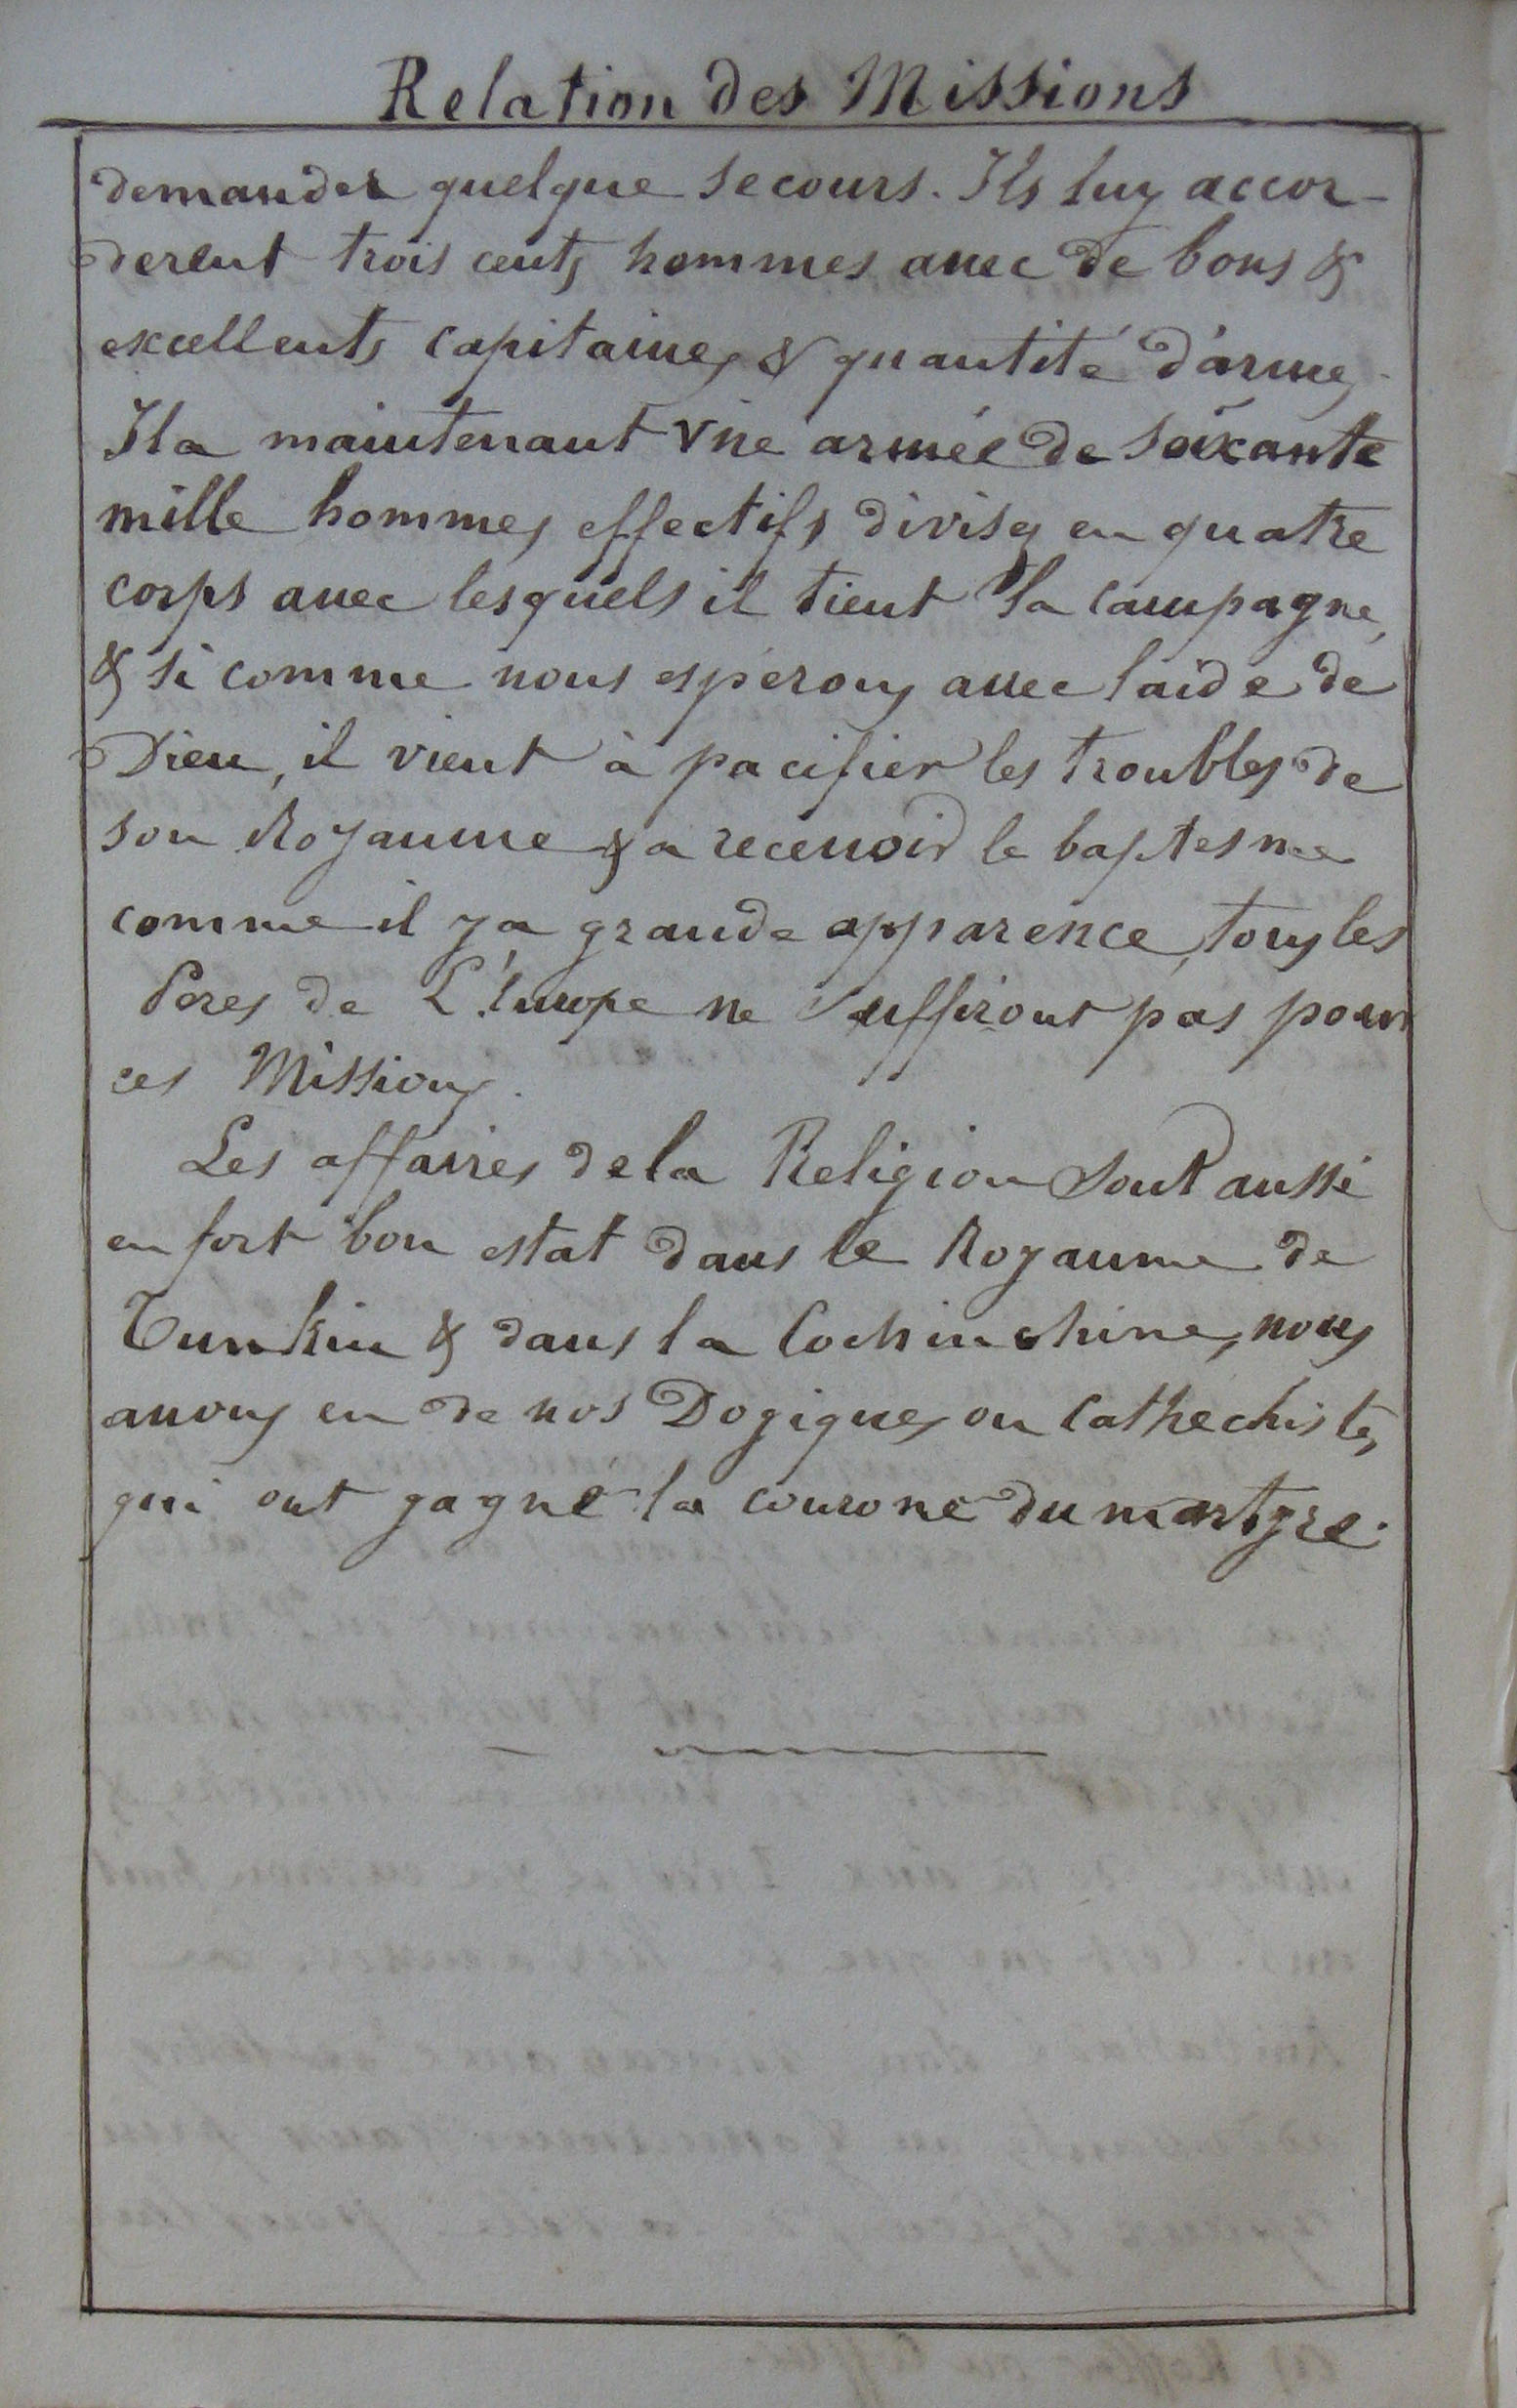 Relation des Missions
demander quelque secours. Ils luy accor-
derent trois cents hommes auec de bons &
excellents capitaines & quantité d'armes.
Il a maintenant vne armée de soixante
mille hommes effectifs divisez en quatre
corps auec lesquels il tient la campagne,
& si comme nous esperons auec laide de
Dieu, il vient à pacifier les troubles de
son Royaume & a receuoir le baptesme
comme il y a grande apparence, tous les
Peres de L'Europe ne suffiront pas pour
ces Missions.
Les affaires de la Religion sont aussi
en fort bon estat dans le Royaume de
Tunkin & dans la Cochinchine, nous
auons eu de nos Dogiques ou Cathechistes
qui ont gagné la courone du martyre.